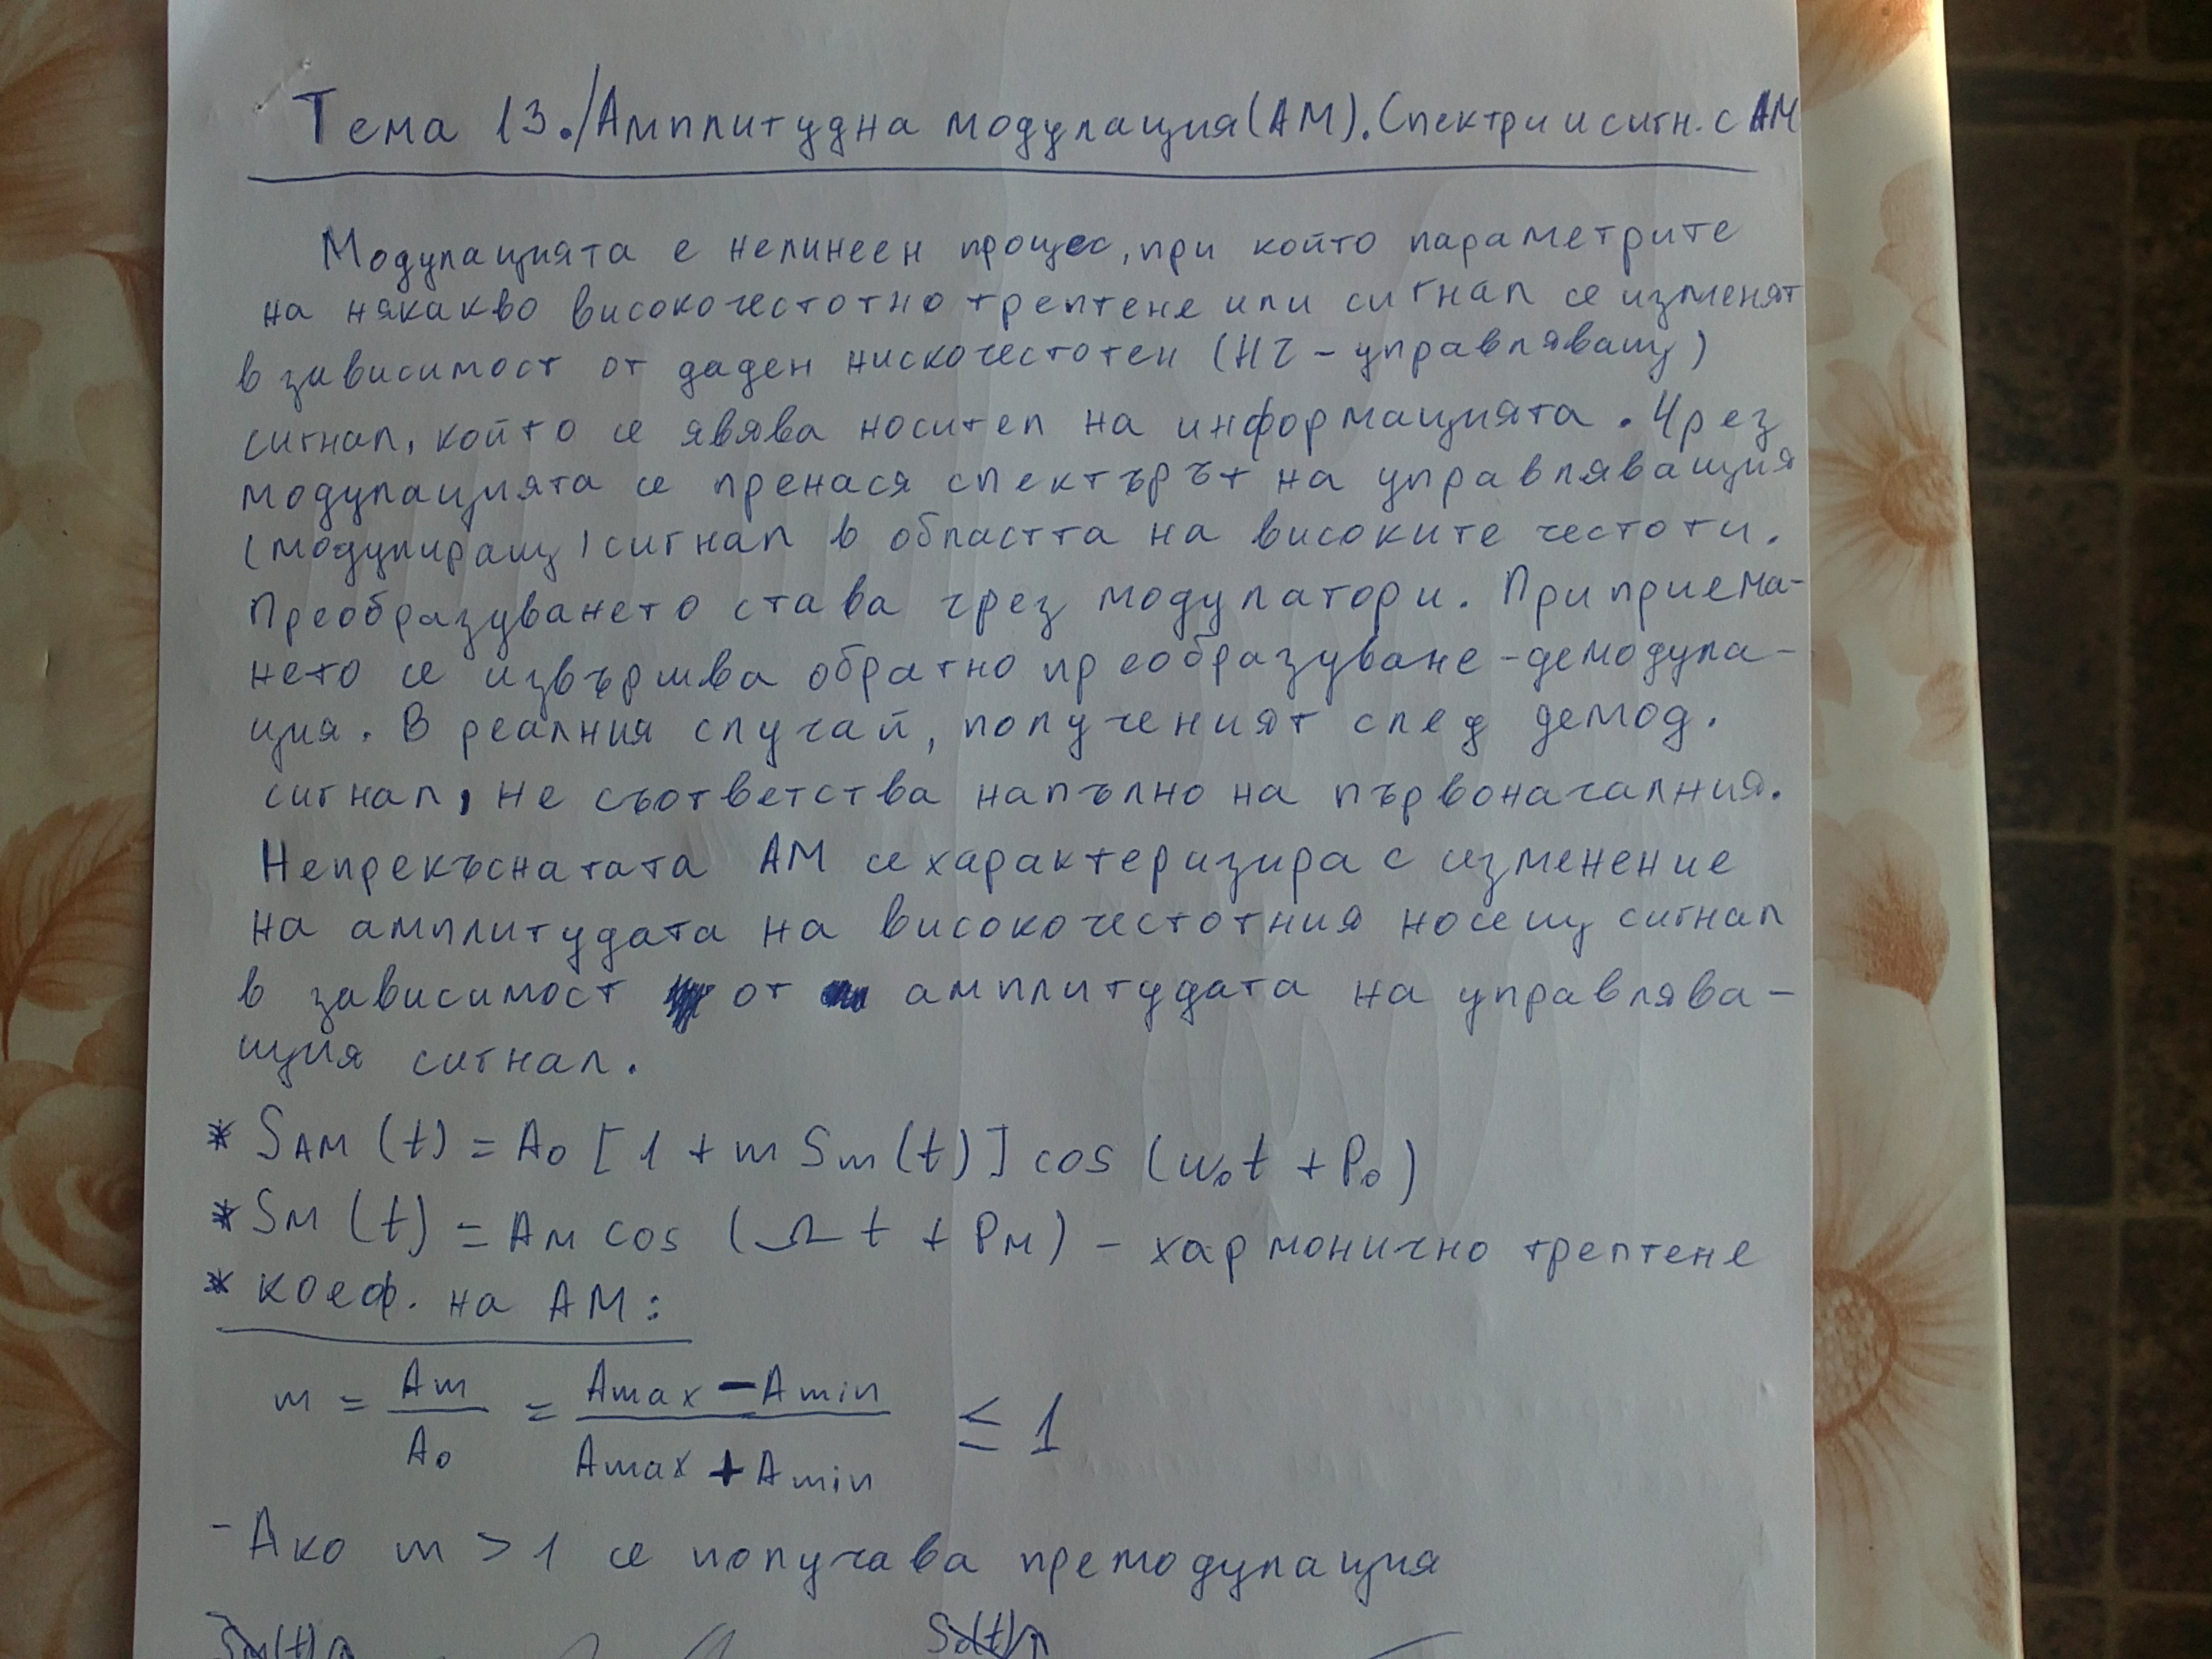 Тема 13./Амплитудна модулация(АМ). Спектри и сигн. с АМ
Модулацията е нелинеен процес, при който параметрите
на някакво високочестотно трептене или сигнал се изменят
в зависимост от даден нискочестотен (НЧ - управляващ)
сигнал, който се явява носител на информацията. Чрез
модулацията се пренася спектърът на управляващия
(модулиращ) сигнал в областта на високите честоти.
Преобразуването става чрез модулатори. При приема-
нето се извършва обратно преобразуване - демодула-
ция. В реалния случай, полученият след демод.
сигнал, не съответства напълно на първоначалния.
Непрекъснатата АМ се характеризира с изменение
на амплитудата на високочестотния носещ сигнал
в зависимост от амплитудата на управлява-
щия сигнал.
* SAM (t) = A0 [1 + m Sm (t)] cos (ω0t + P0)
* SM (t) = AM cos (Ω t + PM) - хармонично трептене
* коеф. на АМ:
m = Am / A0 = Amax - Amin / Amax + Amin ≤ 1
- Ако m > 1 се получава премодулация
SM(t) S0(t)